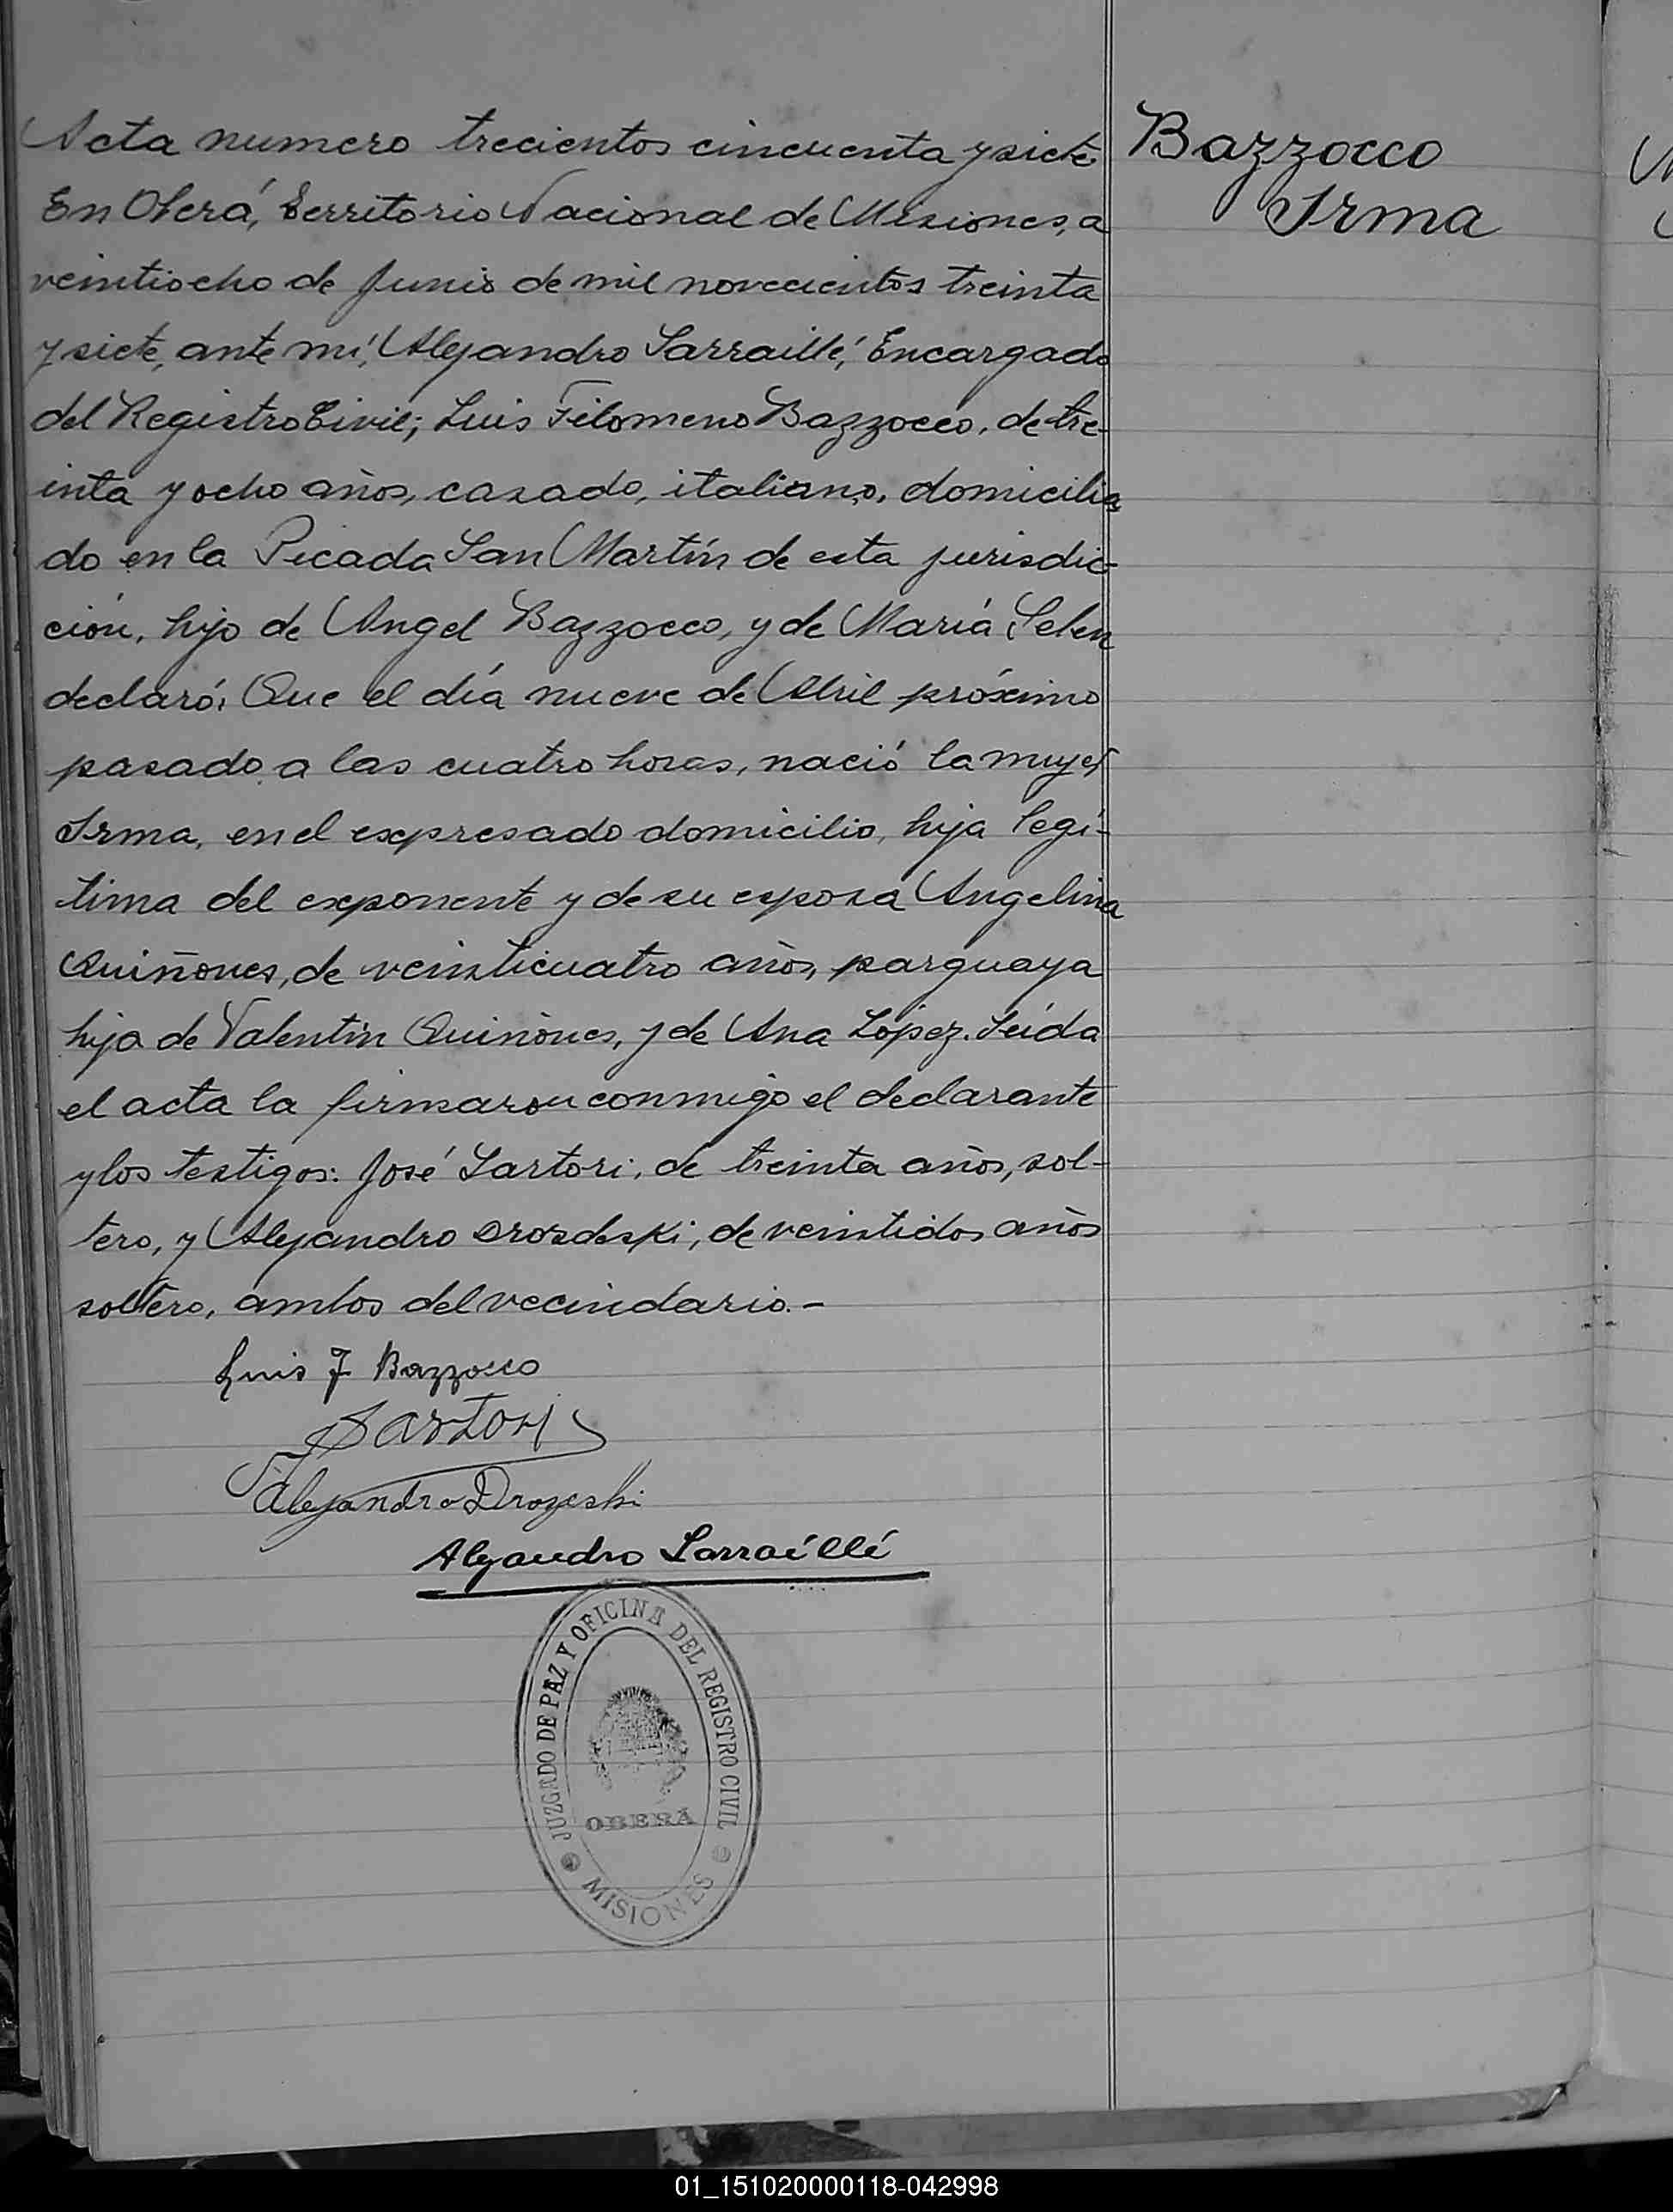 Acta numero trecientos cincuenta y siete
En Oberá, Territorio Nacional de Misiones, a
veintiocho de Junio de mil novecientos treinta
y siete, ante mí, Alejandro Sarraillé, Encargado
del Registro Civil; Luis Filomeno Bazzocco, de tre-
inta y ocho años, casado, italiano, domicilia
do en la Picada San Martín de esta jurisdic-
ción, hijo de Angel Bazzocco, y de María Selen
declaró: Que el día nueve de Abril próximo
pasado a las cuatro horas, nació la mujer
Irma, en el expresado domicilio, hija legí-
tima del exponente y de su esposa Angelina
Quiñones, de veinticuatro años, parguaya
hija de Valentín Quiñones, y de Ana López. Leída
el acta la firmaron conmigo el declarante
y los testigos: José Sartori, de treinta años, sol-
tero, y Alejandro Drosdeski, de veintidos años
soltero, ambos del vecindario.-
Luis F Bazzocco
JSartori
Alejandro Drozeski
Alejandro Sarraillé
JUZGADO DE PAZ Y OFICINA DEL REGISTRO CIVIL
OBERÁ
MISIONES
Bazzocco
Irma
01_151020000118-042998